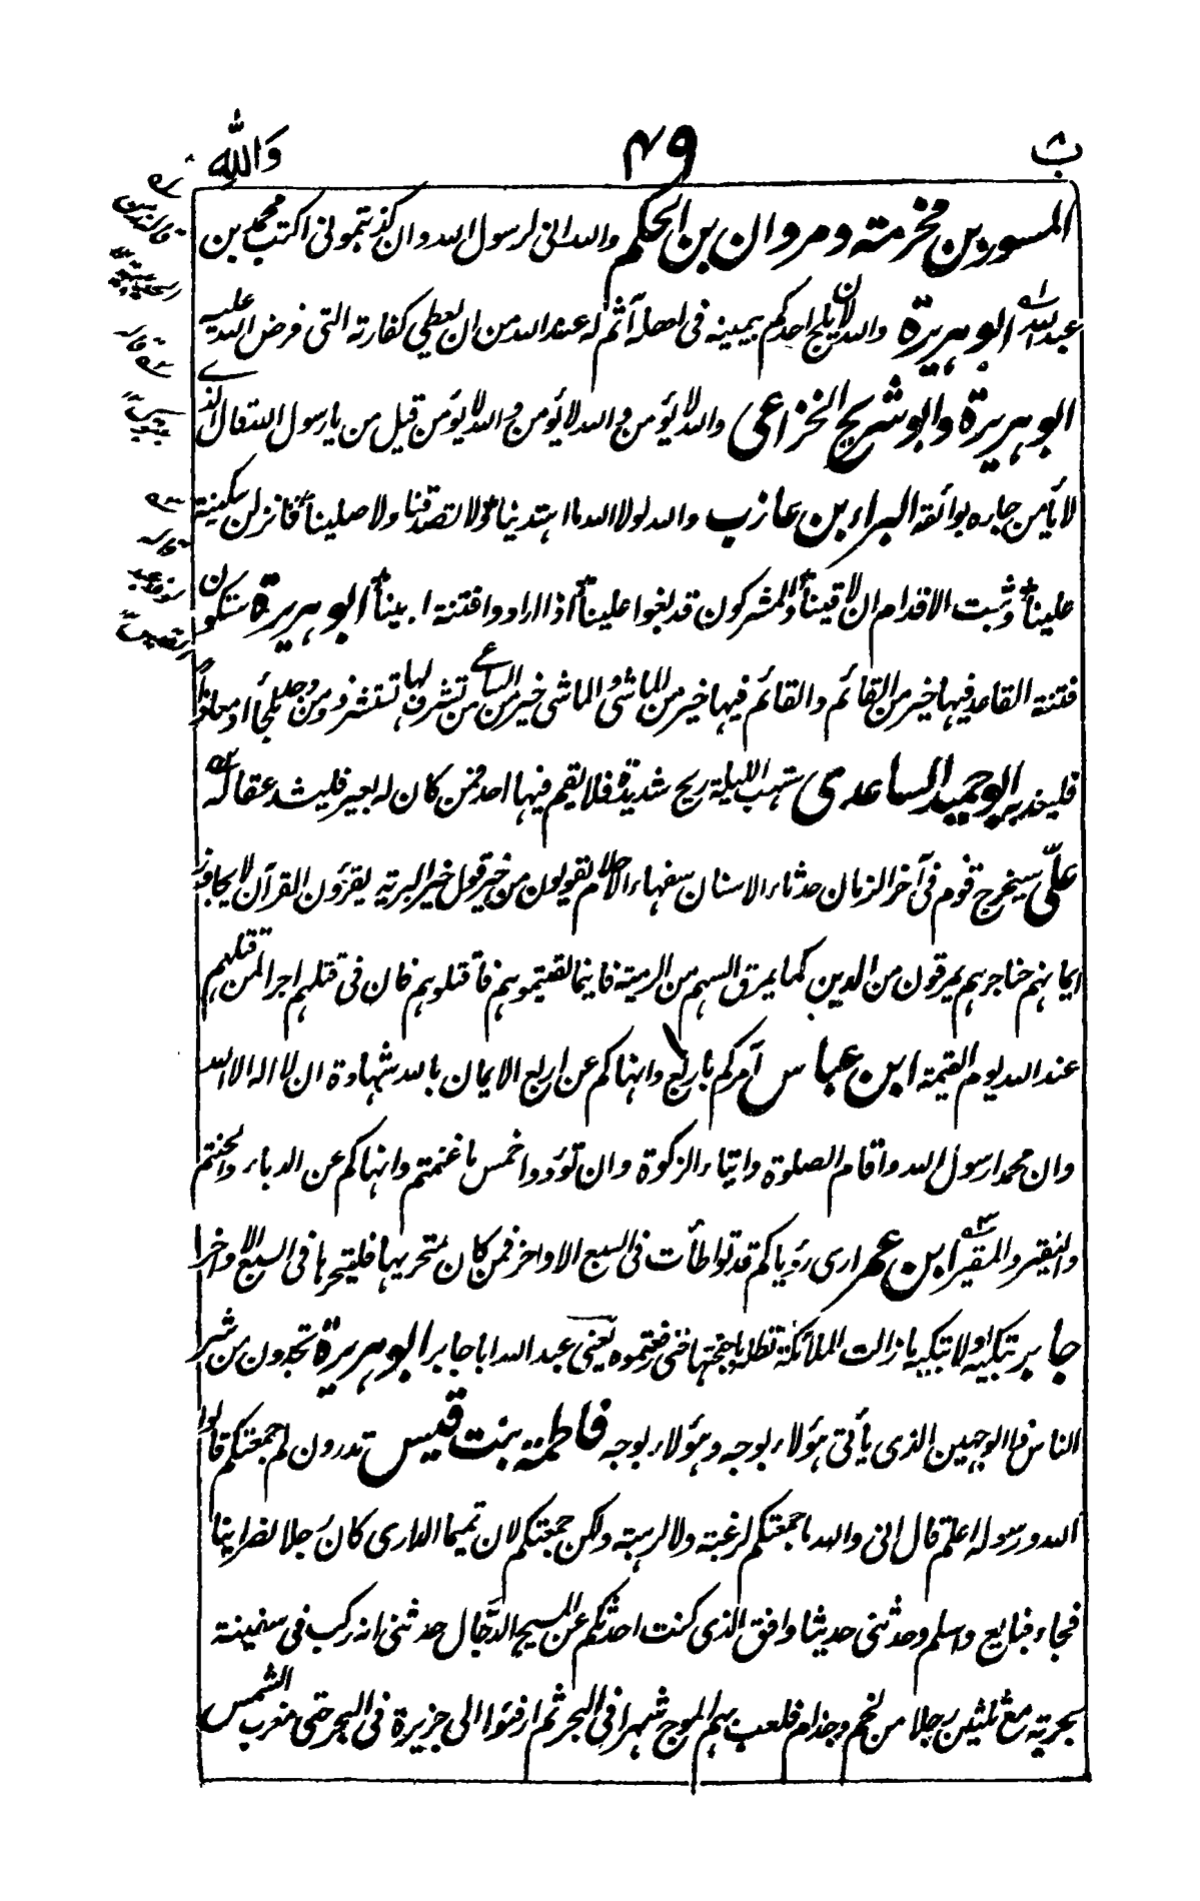 ب ٤٩ والله
المسور بن مخرمة ومروان بن الحكم والله انی لرسول الله وان کذبتمونی اکتب محمد بن
عبد الله ابو هريرة والله لان یلج احدکم بیمینه فی اهله آثم له عند الله من ان یعطی کفارته التی فرض الله علیه
ابو هريرة وابو شريح الخزاعی والله لا یؤمن والله لا یؤمن والله لا یؤمن قیل من یا رسول الله قال الذی
لا یأمن جاره بوائقه البراء بن عازب والله لولا الله ما اهتدینا ولا تصدقنا ولا صلینا فانزلن سکینة
علینا وثبت الاقدام ان لاقینا والمشرکون قد بغوا علینا اذا ارادوا فتنة ابینا ابو هريرة ستکون
فتنة القاعد فیها خیر من القائم والقائم فیها خیر من الماشی والماشی خیر من الساعی من تشرف لها تستشرفه ومن وجد ملجأ او معاذا
فلیعذ به ابو حمید الساعدی ستهب اللیلة ریح شدیدة فلا یقم فیها احد فمن کان له بعیر فلیشد عقاله
علی سیخرج قوم فی آخر الزمان حدثاء الاسنان سفهاء الاحلام یقولون من خیر قول خیر البریة یقرؤن القرآن لا یجاوز
ایمانهم حناجرهم یمرقون من الدین کما یمرق السهم من الرمیة فاینما لقیتموهم فاقتلوهم فان فی قتلهم اجرا لمن قتلهم
عند الله یوم القیمة ابن عباس آمرکم باربع وانهاکم عن اربع الایمان بالله شهادة ان لا اله الا الله
وان محمدا رسول الله واقام الصلوة وایتاء الزکوة وان تؤدوا خمس ما غنمتم وانهاکم عن الدباء والحنتم
والنقیر والمقیر ابن عمر اری رؤیاکم قد تواطأت فی السبع الاواخر فمن کان متحریها فلیتحرها فی السبع الاواخر
جابر تبکیه اولا تبکیه ما زالت الملائکة تظله باجنحتها حتی رفعتموه یعنی عبد الله ابا جابر ابو هريرة تجدون من شر
الناس ذا الوجهین الذی یأتی هؤلاء بوجه وهؤلاء بوجه فاطمة بنت قیس تدرون لم جمعتکم قالوا
الله ورسوله اعلم قال انی والله ما جمعتکم لرغبة ولا لرهبة ولکن جمعتکم لان تمیما الداری کان رجلا نصرانیا
فجاء فبایع واسلم وحدثنی حدیثا وافق الذی کنت احدثکم عن المسیح الدجال حدثنی انه رکب فی سفینة
بحریة مع ثلثین رجلا من لخم وجذام فلعب بهم الموج شهرا فی البحر ثم ارفئوا الی جزیرة فی البحر حتی مغرب الشمس